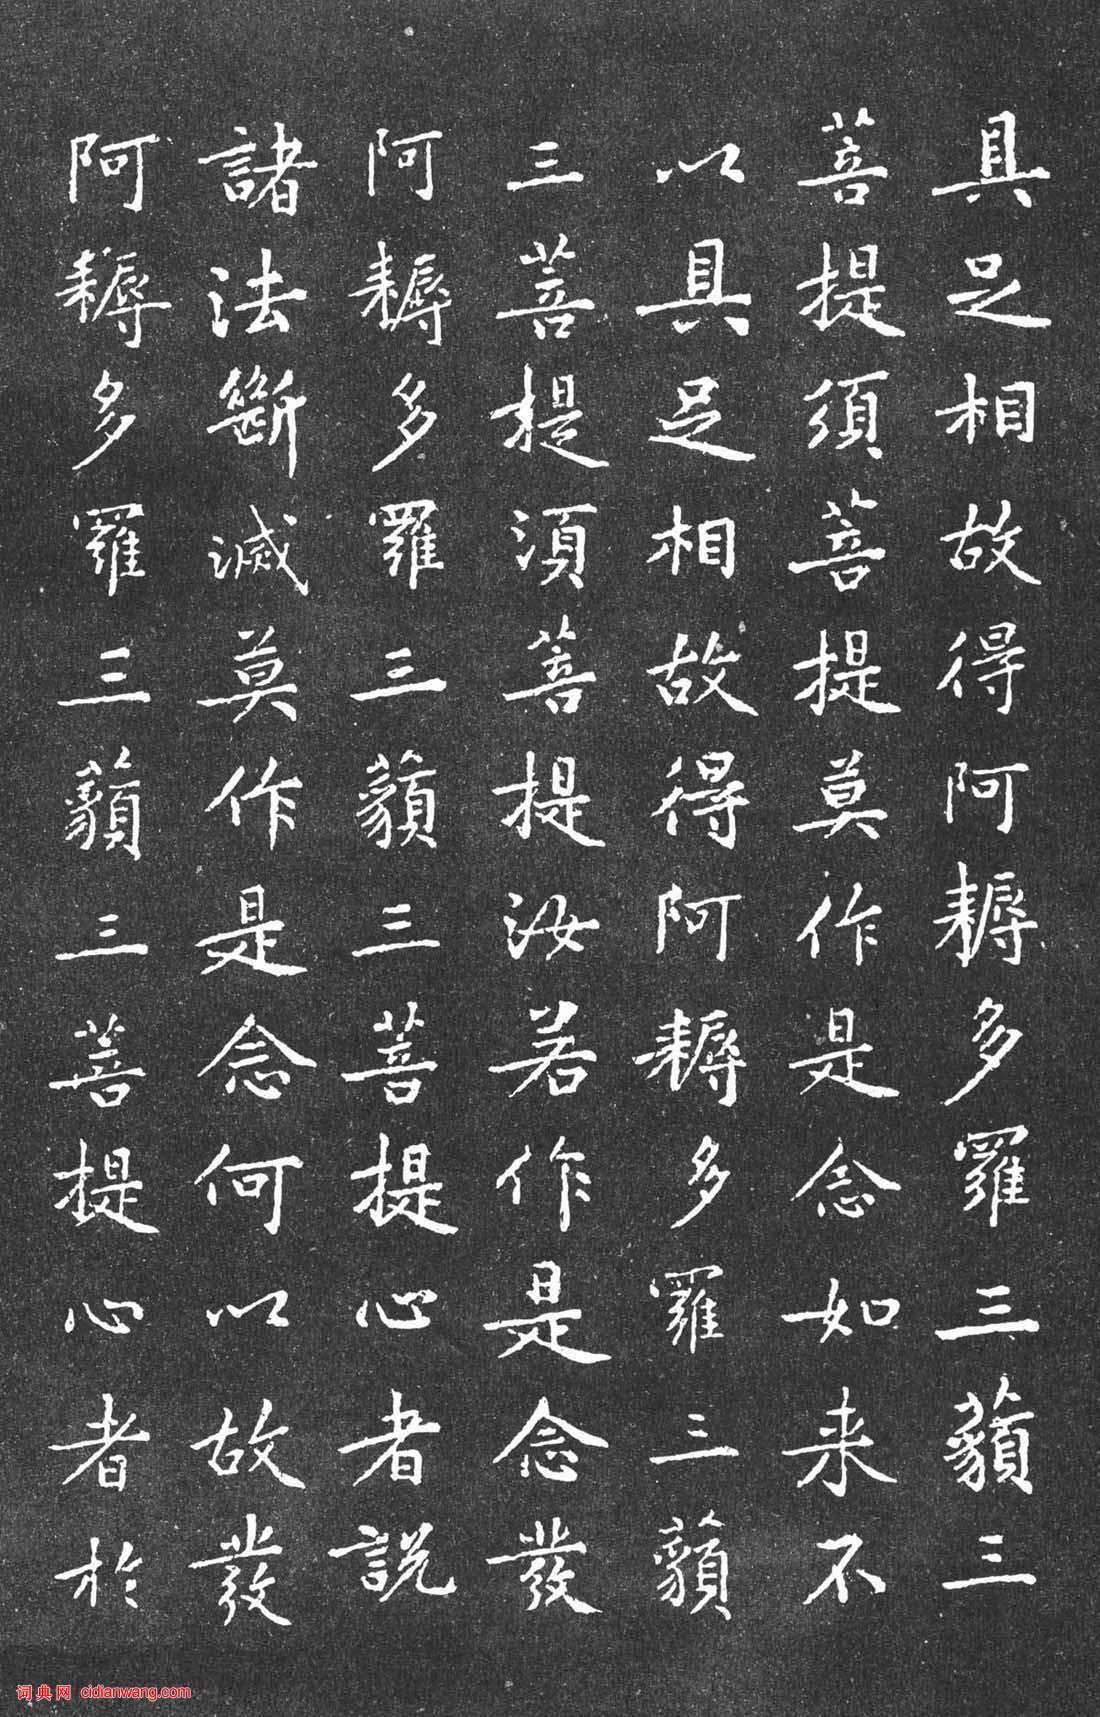 具足相故得阿耨多羅三藐三
菩提須菩提莫作是念如来不
以具足相故得阿耨多羅三藐
三菩提須菩提汝若作是念發
阿耨多羅三藐三菩提心者說
諸法斷滅莫作是念何以故發
阿耨多羅三藐三菩提心者於
词典网 cidianwang.com